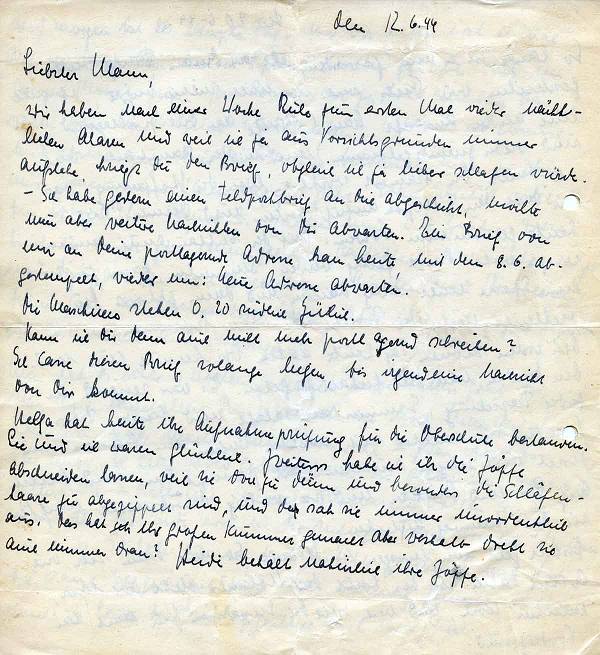 den 12.6.44
Liebster Mann,
wir haben nach einer Woche Ruhe zum ersten Mal wieder nächt-
lichen Alarm und weil ich ja aus Vorsichtsgründen immer
aufstehe, kriegst du den Brief, obgleich ich ja lieber schlafen würde.
– Ich habe gestern einen Feldpostbrief an Dich abgeschickt, wollte
nun aber weitere Nachrichten von Dir abwarten. Ein Brief von
mir an Deine postlagernde Adresse kam heute mit dem 8.6. ab-
gestempelt, wieder um: Neue Adresse abwarten!
Die Maschinen stehen 0.20 südlich
Kann ich Dir denn auch nicht mehr postlagernd schreiben?
Ich lasse diesen Brief solange liegen, bis irgendeine Nachricht
von Dir kommt.
Helga hat heute ihre Aufnahmeprüfung für die Oberschule bestanden.
Sie und ich waren glücklich. habe ich ihr die Zöpfe
abschneiden lassen, weil sie zu dünn und besonders die Schläfen-
haare zu sind, und da sah sie immer unordentlich
aus. Das hat ihr großen Kummer gemacht aber weshalb dreht sie
auch immer dran? Heidi behält natürlich ihre Zöpfe.